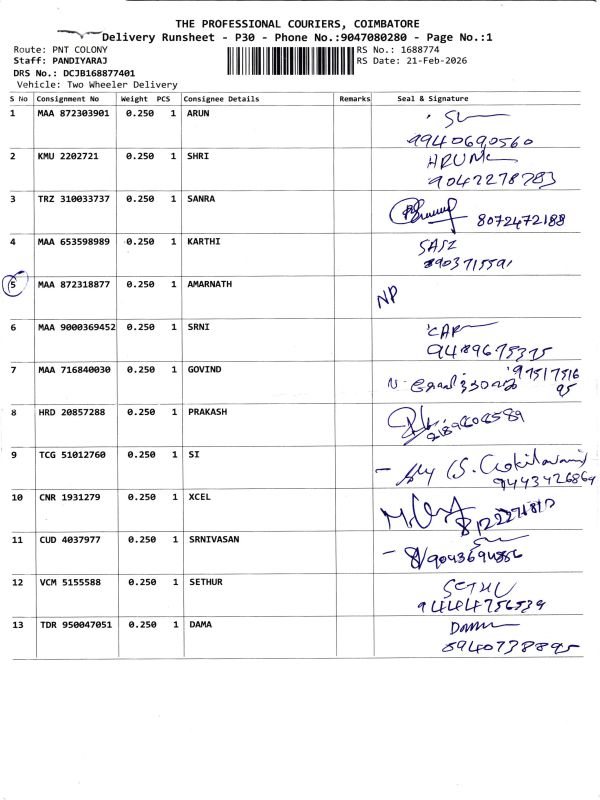 THE PROFESSIONAL COURIERS, COIMBATORE
Delivery Runsheet - P30 - Phone No.:9047080280 - Page No.:1
Route: PNT COLONY RS No.: 1688774
Staff: PANDIYARAJ RS Date: 21-Feb-2026
DRS No.: DCJB168877401
Vehicle: Two Wheeler Delivery
S No Consignment No Weight PCS Consignee Details Remarks Seal & Signature
1 MAA 872303901 0.250 1 ARUN
9940690560
2 KMU 2202721 0.250 1 SHRI
9042278783
3 TRZ 310033737 0.250 1 SANRA
8072472188
4 MAA 653598989 0.250 1 KARTHI
8903715591
5 MAA 872318877 0.250 1 AMARNATH NP
6 MAA 9000369452 0.250 1 SRNI
9489675375
7 MAA 716840030 0.250 1 GOVIND 97517516
95
8 HRD 20857288 0.250 1 PRAKASH
9 TCG 51012760 0.250 1 SI
9443426864
10 CNR 1931279 0.250 1 XCEL
11 CUD 4037977 0.250 1 SRNIVASAN
9043694886
12 VCM 5155588 0.250 1 SETHUR SETHU
9444756539
13 TDR 950047051 0.250 1 DAMA
8940738895